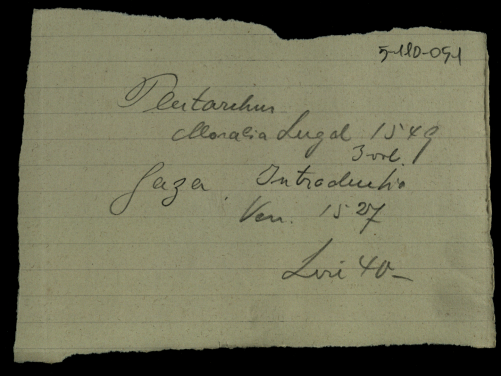 5-110-091
Plutarchus
Moralia Lugd 1549
3 vol.
Gaza. Introductio
Ven. 1527
Lire 40-